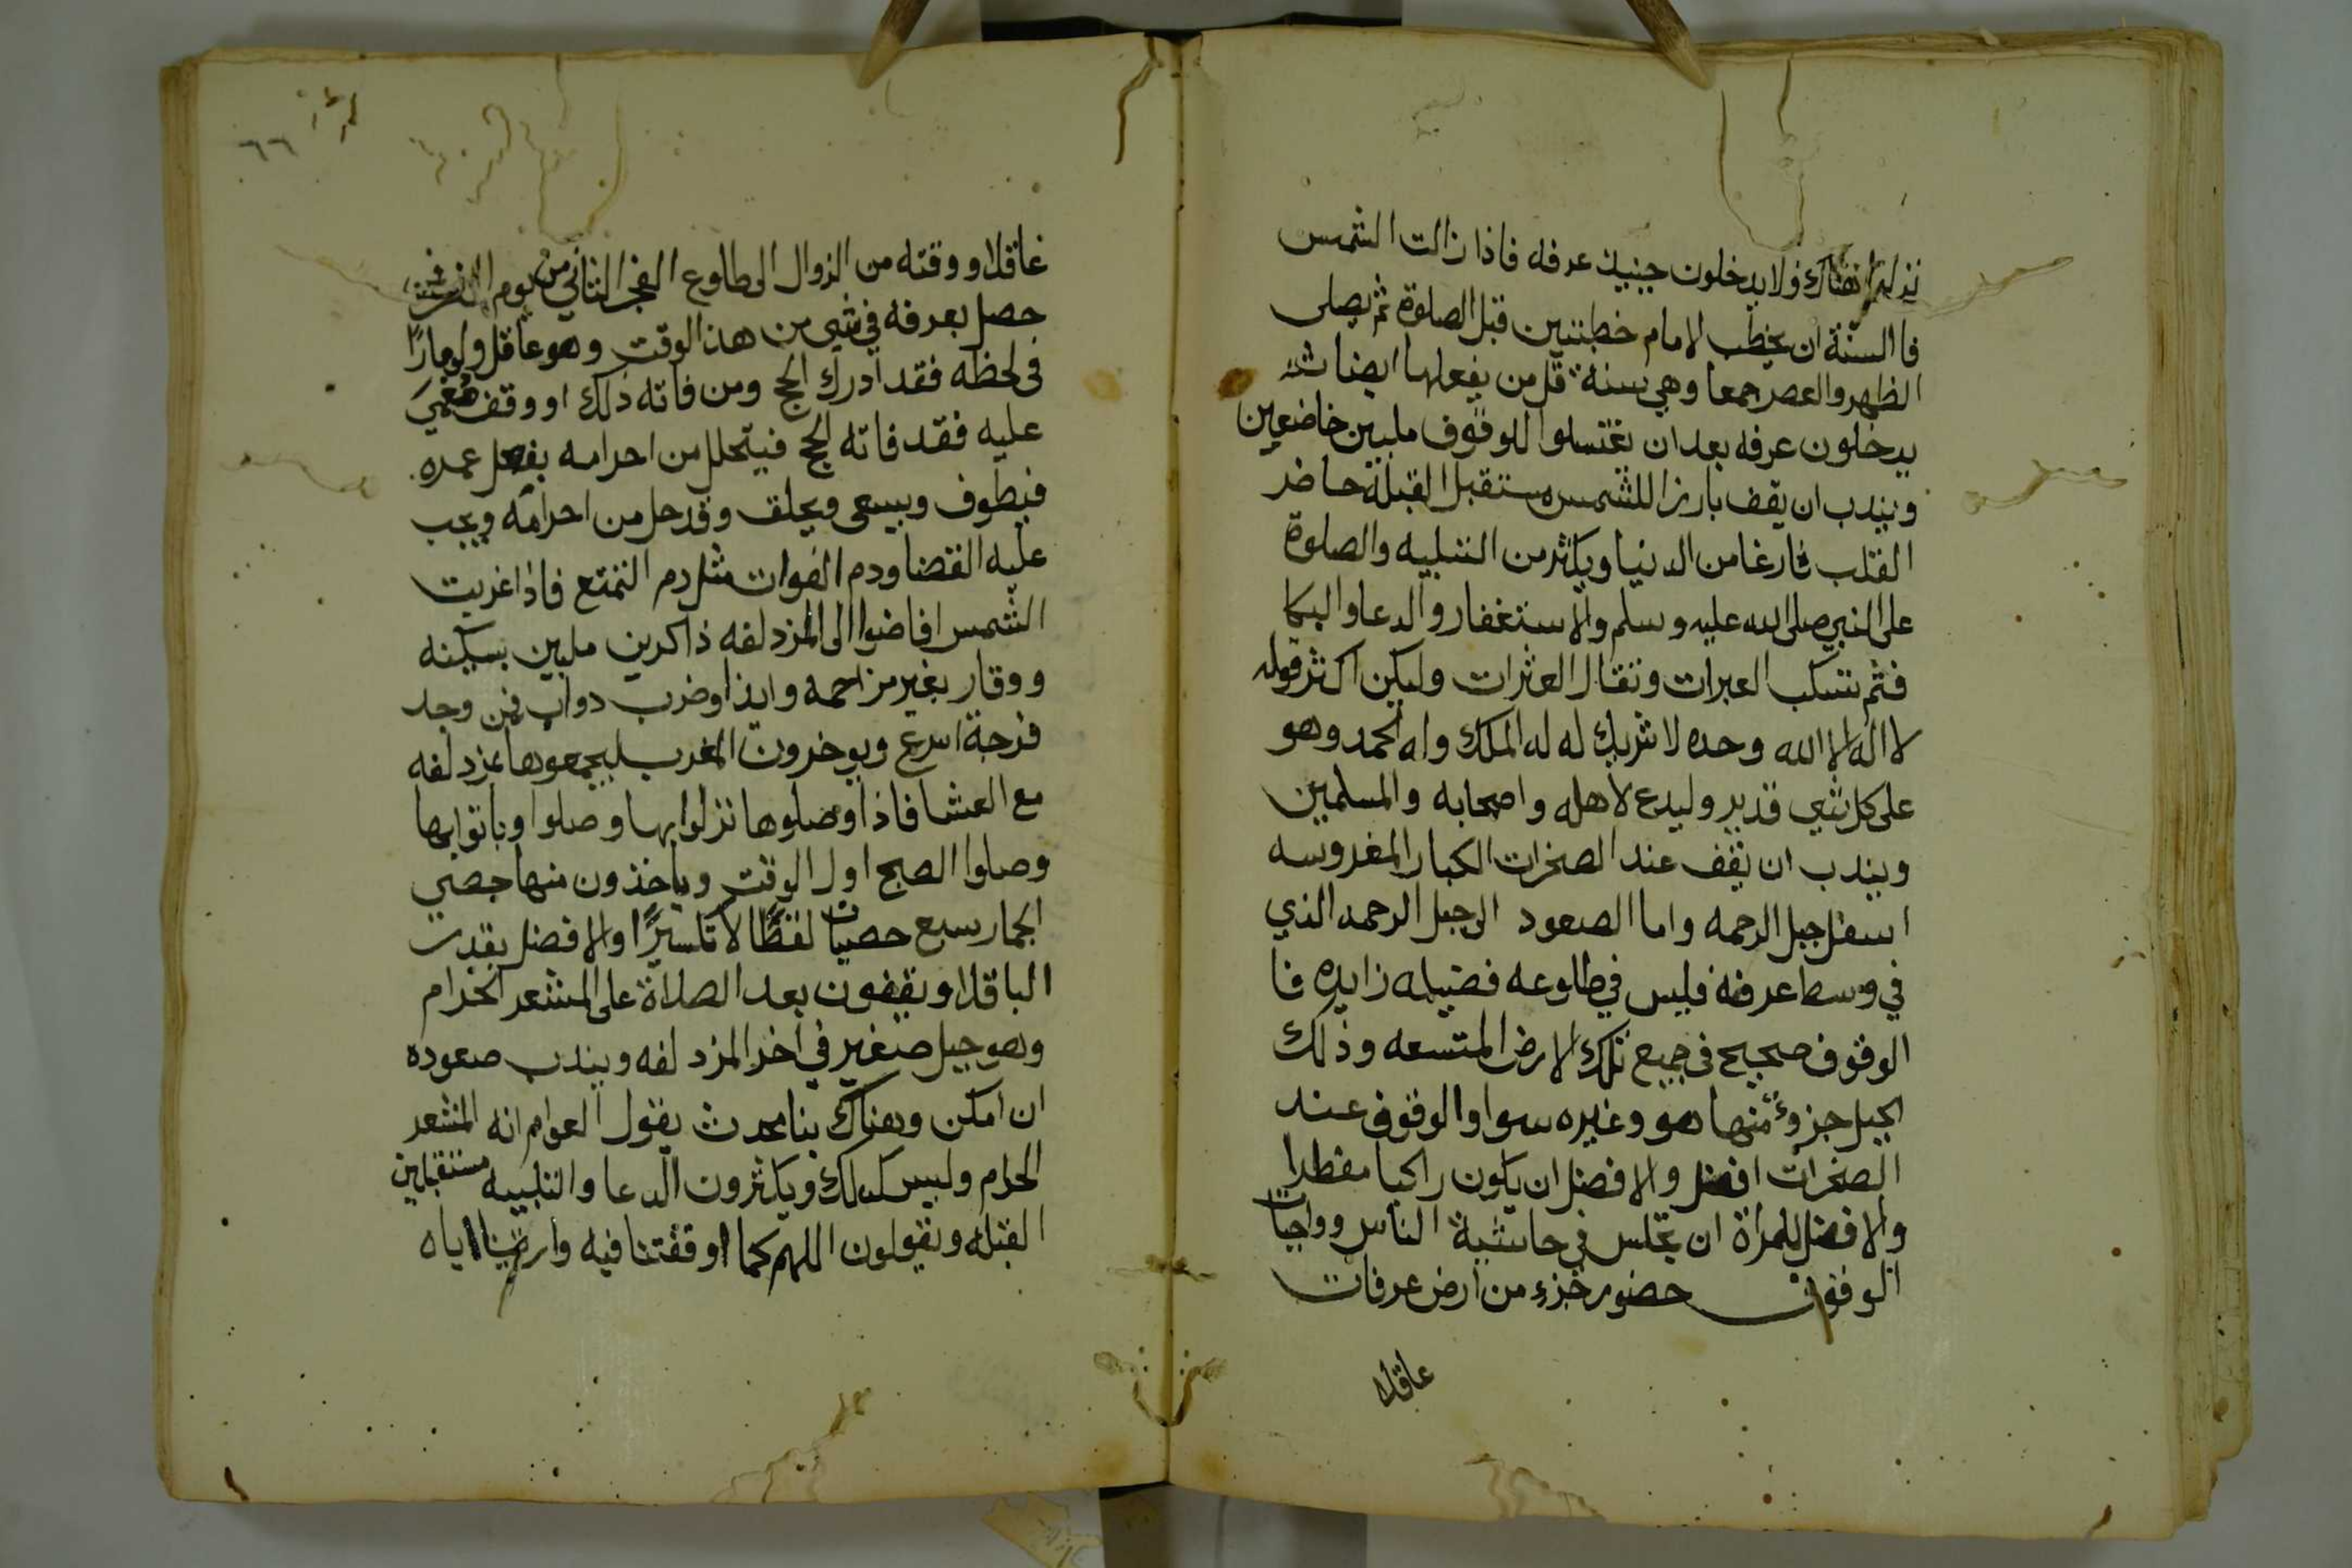 نزلوا هناك ولا يدخلون حينيذ عرفه فاذا زالت الشمس
فا السنة ان يخطب الامام خطبتين قبل الصلوة ثم يصلى
الظهر والعصر جمعا وهي سنة قل من يفعلها ايضا ثم
يدخلون عرفه بعد ان يغتسلوا للوقوف ملبين خاضعين
ويندب ان يقف بارزا للشمس مستقبل القبلة حاضر
القلب فارغا من الدنيا ويكثر من التلبيه والصلوة
على النبي صلى الله عليه وسلم والاستغفار والدعا والبكا
فثم تسكب العبرات وتقال العثرات وليكن اكثر قوله
لا اله الا الله وحده لا شريك له له الملك وله الحمد وهو
على كل شي قدير وليدع لاهله واصحابه والمسلمين
ويندب ان يقف عند الصخرات الكبار المفروسه
اسفل جبل الرحمه واما الصعود الى جبل الرحمه الذي
في وسط عرفه فليس في طلوعه فضيله زايده فا
الوقوف صحيح في جميع تلك الارض المتسعه وذلك
الجبل جزؤ منها هو وغيره سوا والوقوف عند
الصخرات افضل والافضل ان يكون راكبا مفطرا
والافضل للمراة ان تجلس في حاشية الناس وواجبات
الوقوف حضور جزء من ارض عرفات
عاقلا
٦٦
عاقلا ووقته من الزوال الى طلوع الفجر الثاني من يوم النحر فمن
حصل بعرفه في شي من هذا الوقت وهو عاقل ولو مارًا
في لحظه فقد ادرك الحج ومن فاته ذلك او وقف مُغمىَ
عليه فقد فاته الحج فيتحلل من احرامه بفعل عمره
فيطوف ويسعى ويحلق وقد حل من احرامه ويجب
عليه القضا ودم الفوات مثل دم التمتع فاذا غربت
الشمس افاضوا الى المزدلفه ذاكرين ملبين بسكينه
ووقار بغير مزاحمه وايذا وضرب دواب فمن وجد
فرجة اسرع ويوخرون المغرب ليجمعوها بمزدلفه
مع العشا فاذا وصلوها نزلوا بها وصلوا وباتوا بها
وصلوا الصبح اول الوقت وياخذون منها حصي
الجمار سبع حصيات لقطًا لا تكسيرًا والافضل بقدر
الباقلا ويقفون بعد الصلاة على المشعر الحرام
وهو جبل صغير في اخر المزدلفه ويندب صعوده
ان امكن وهناك بنا محدث يقول العوام انه المشعر
الحرام وليس كذلك ويكثرون الدعا والتلبيه مستقبلين
القبله ويقولون اللهم كما اوقفتنا فيه واريتنا اياه